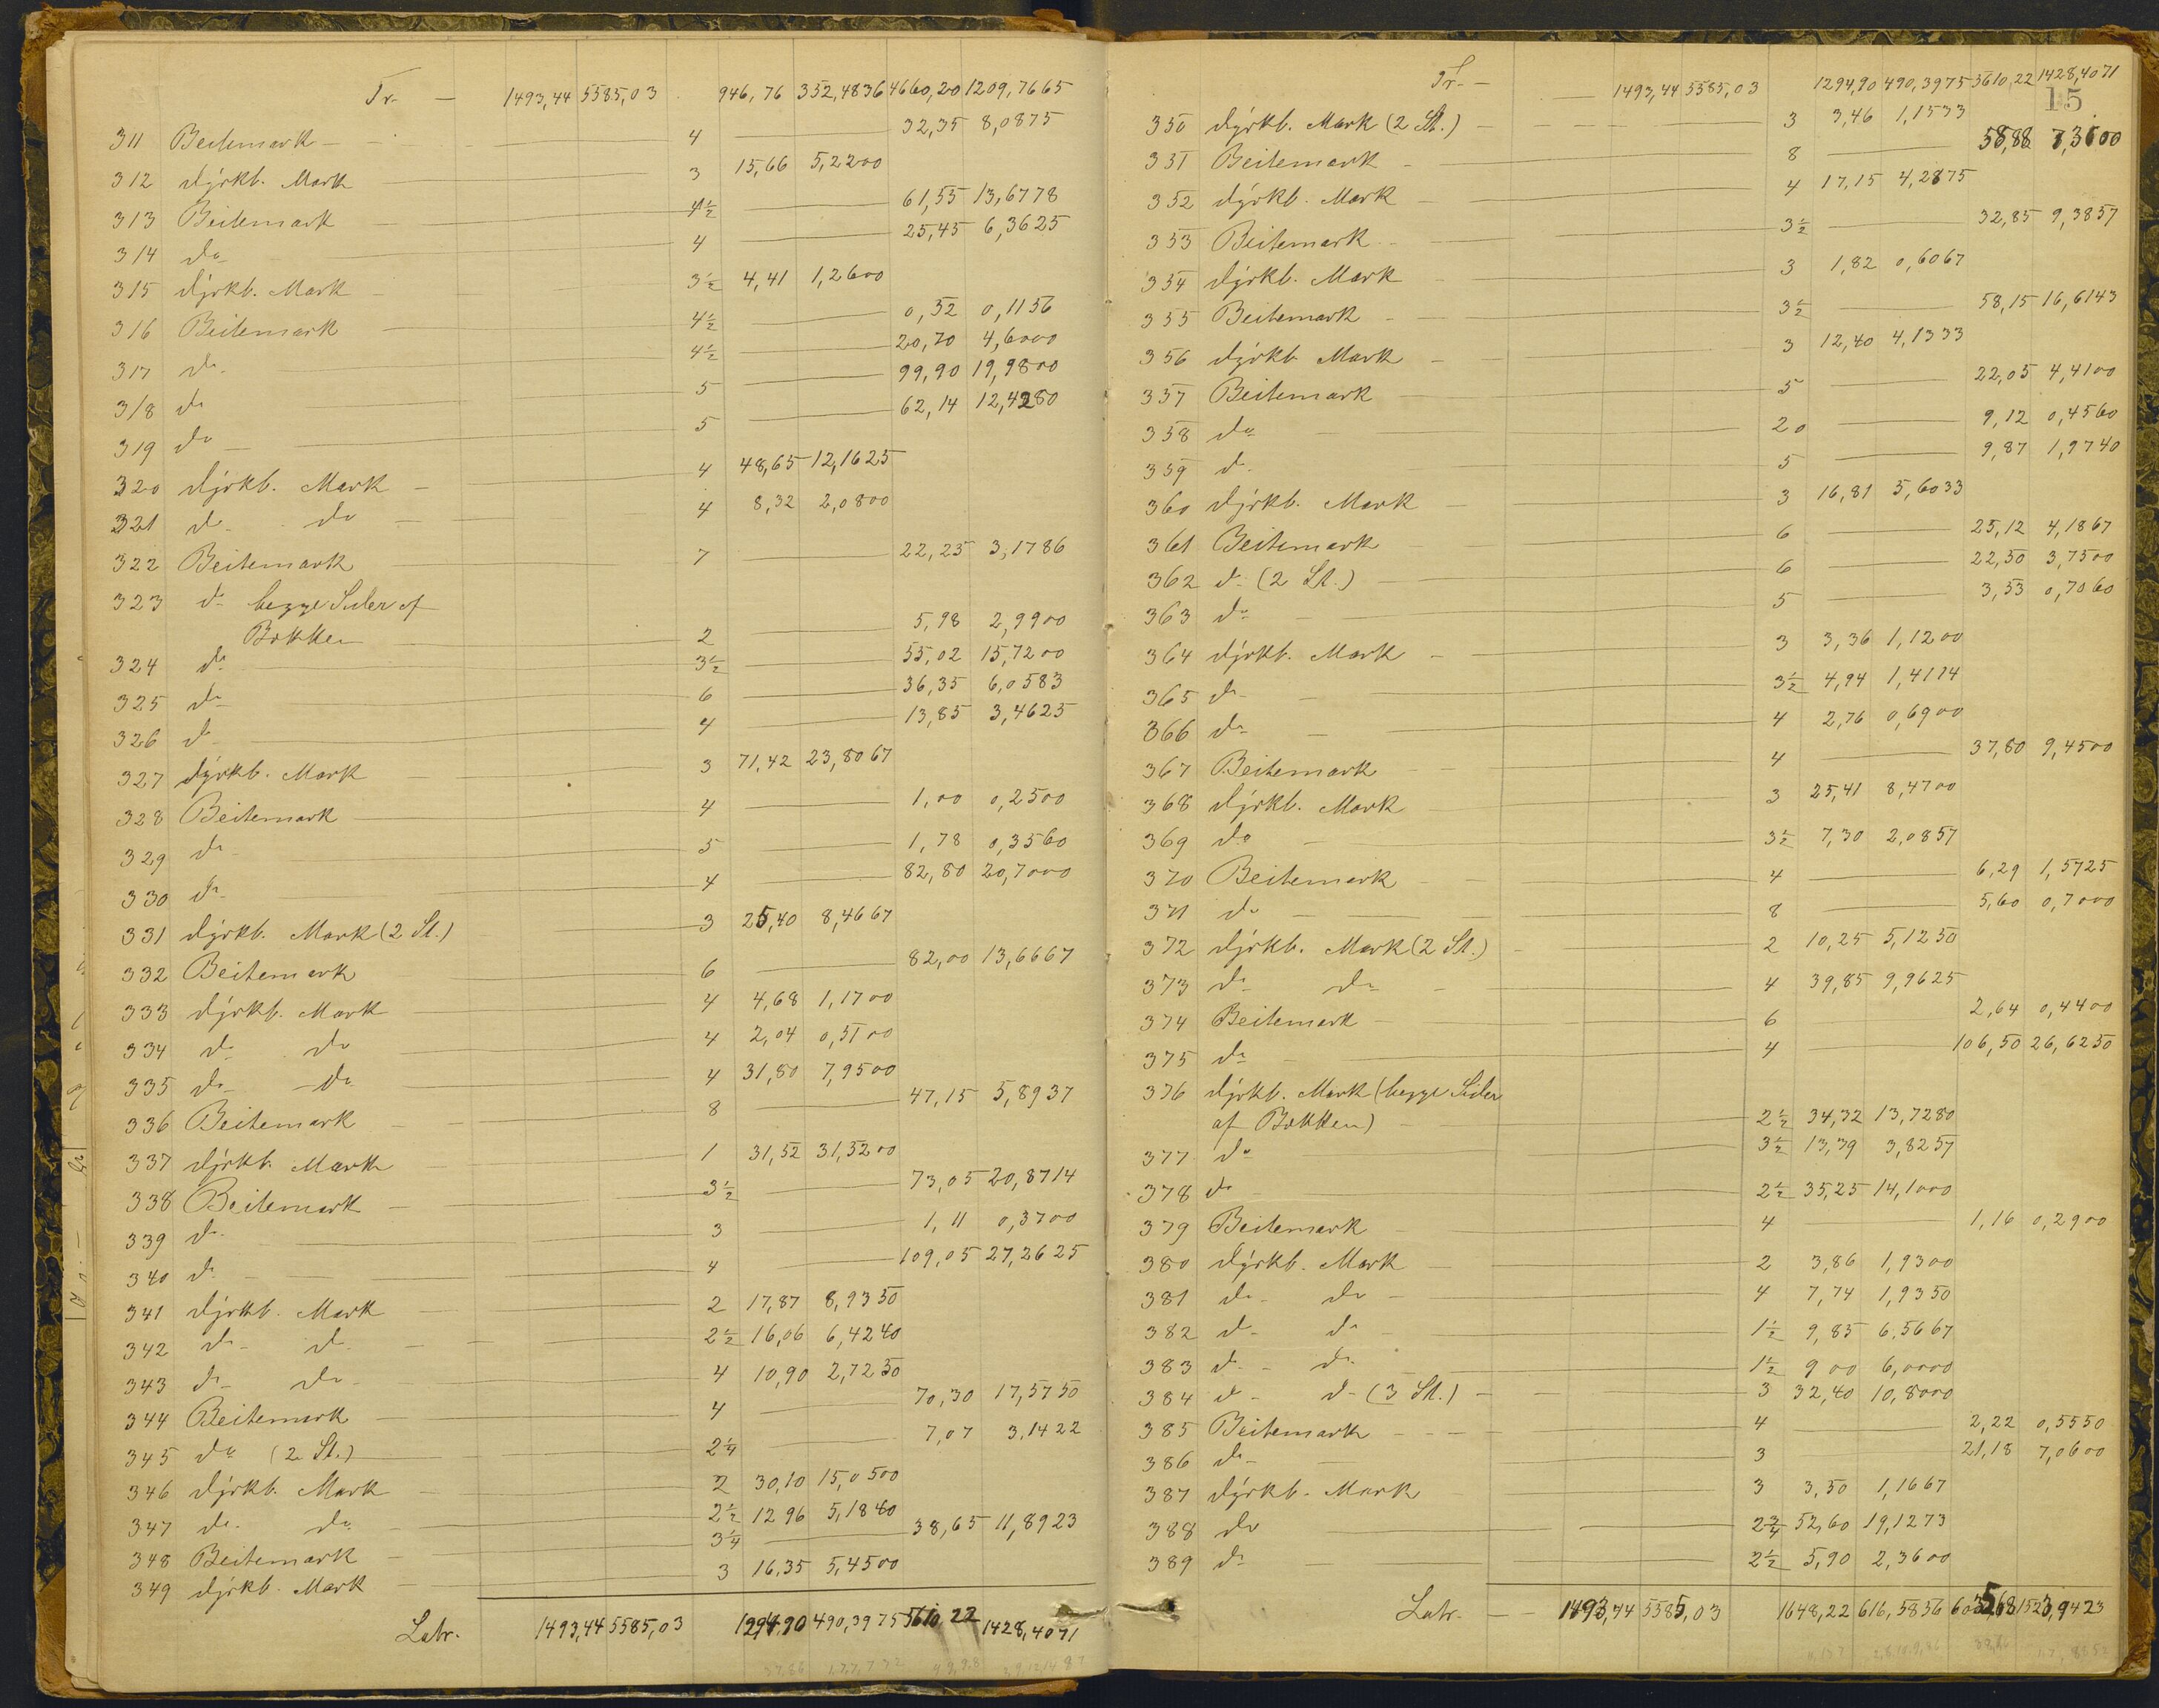 Tr. — 1493,44 5585,03 946,76 352,4836 4660,20 1209,7665
311 Beitemark 4 32,35 8,0875
312 dyrkb. Mark 3 15,66 5,2200
313 Beitemark 4½ 61,55 13,6778
314 do 4 25,45 6,3625
315 dyrkb. Mark 3½ 4,41 1,2600
316 Beitemark 4½ 0,52 0,1156
317 do 4½ 20,70 4,6000
318 do 5 99,90 19,9800
319 do 5 62,14 12,4280
320 dyrkb. Mark 4 48,65 12,1625
321 do do 4 8,32 2,0800
322 Beitemark 7 22,25 3,1786
323 do begge Sider af
Bækken 2 5,98 2,9900
324 do 3½ 55,02 15,7200
325 do 6 36,35 6,0583
326 do 4 13,85 3,4625
327 dyrkb. Mark 3 71,42 23,8067
328 Beitemark 4 1,00 0,2500
329 do 5 1,78 0,3560
330 do 4 82,80 20,7000
331 dyrkb. Mark (2 St.) 3 25,40 8,4667
332 Beitemark 6 82,00 13,6667
333 dyrkb. Mark 4 4,68 1,1700
334 do do 4 2,04 0,5100
335 do do 4 31,80 7,9500
336 Beitemark 8 47,15 5,8937
337 dyrkb. Mark 1 31,52 31,5200
338 Beitemark 3½ 73,05 20,8714
339 do 3 1,11 0,3700
340 do 4 109,05 27,2625
341 dyrkb. Mark 2 17,87 8,9350
342 do do 2½ 16,06 6,4240
343 do do 4 10,90 2,7250
344 Beitemark 4 70,30 17,5750
345 do (2 St.) 2¼ 7,07 3,1422
346 dyrkb. Mark 2 30,10 15,0500
347 do do 2½ 12 96 5,1840
348 Beitemark 3¼ 38,65 11,8923
349 dyrkb. Mark 3 16,35 5,4500
Latr. 1493,44 5585,03 1294,90 490,3975 5610,22 1428,4071
Tr. — 1493,44 5585,03 1294,90 490,3975 5610,22 1428,4071
15
350 dyrkb. Mark (2 St.) 3 3,46 1,1533
351 Beitemark 8 58,88 7,3600
352 dyrkb. Mark 4 17,15 4,2875
353 Beitemark 3½ 32,85 9,3857
354 dyrkb. Mark 3 1,82 0,6067
355 Beitemark 3½ 58,15 16,6143
356 dyrkb Mark 3 12,40 4,1333
357 Beitemark 5 22,05 4,4100
358 do 20 9,12 0,4560
359 do 5 9,87 1,9740
360 dyrkb. Mark 3 16,81 5,6033
361 Beitemark 6 25,12 4,1867
362 do (2 St.) 6 22,50 3,7500
363 do 5 3,53 0,7060
364 dyrkb. Mark 3 3,36 1,1200
365 do 3½ 4,94 1,4114
366 do 4 2,76 0,6900
367 Beitemark 4 37,80 9,4500
368 dyrkb. Mark 3 25,41 8,4700
369 do 3½ 7,30 2,0857
370 Beitemark 4 6,29 1,5725
371 do 8 5,60 0,7000
372 dyrkb. Mark (2 St.) 2 10,25 5,1250
373 do do 4 39,85 9,9625
374 Beitemark 6 2,64 0,4400
375 do 4 106,50 26,6250
376 dyrkb. Mark (begge Sider
af Bækken) 2½ 34,32 13,7280
377 do 3½ 13,39 3,8257
378 do 2½ 35,25 14,1000
379 Beitemark 4 1,16 0,2900
380 dyrkb. Mark 2 3,86 1,9300
381 do do 4 7,74 1,9350
382 do do 1½ 9,85 6,5667
383 do do 1½ 9 00 6,0000
384 do do (3 St.) 3 32,40 10,8000
385 Beitemark 4 2,22 0,5550
386 do 3 21,18 7,0600
387 dyrkb. Mark 3 3,50 1,1667
388 do 2¾ 52,60 19,1273
389 do 2½ 5,90 2,3600
Latr. 1493,44 5585,03 1648,22 616,5856 6035,68 1523,9423